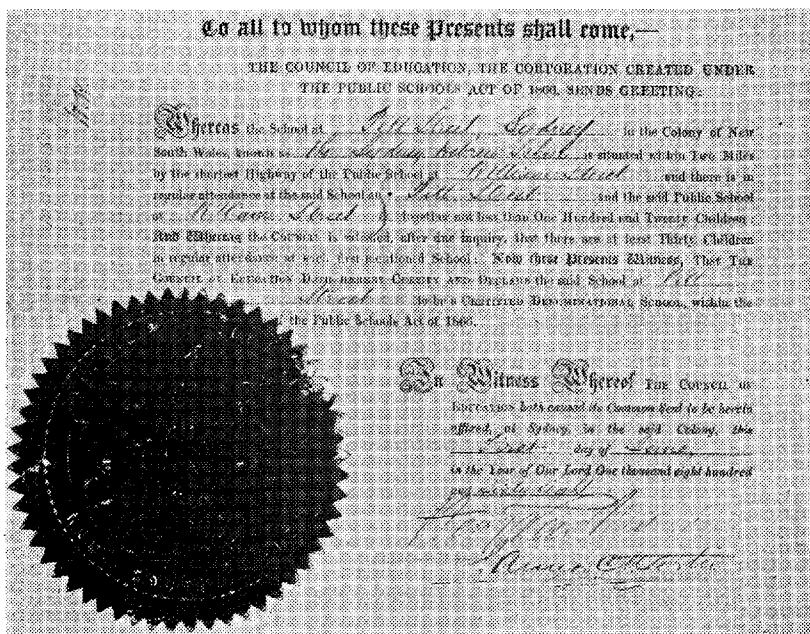 To all to whom these Presents shall come,—
THE COUNCIL OF EDUCATION, THE CORPORATION CREATED UNDER
THE PUBLIC SCHOOLS ACT OF 1866, SENDS GREETING:
Whereas the School at Pitt Street, Sydney in the Colony of New
South Wales, known as the Sydney Hebrew School is situated within Two Miles
by the shortest Highway of the Public School at William Street and there is in
regular attendance at the said School at Pitt Street and the said Public School
at William Street together not less than One Hundred and Twenty Children:
And Whereas the Council is satisfied, after due inquiry, that there are at least Thirty Children
in regular attendance at such first mentioned School: Now these Presents Witness, That The
Council of Education Doth hereby Certify and Declare the said School at Pitt
Street to be a Certified Denominational School, within the
the Public Schools Act of 1866.
In Witness Whereof The Council of
Education hath caused its Common Seal to be herein
affixed, at Sydney, in the said Colony, this
First day of June
in the Year of Our Lord One thousand eight hundred
and sixty eight